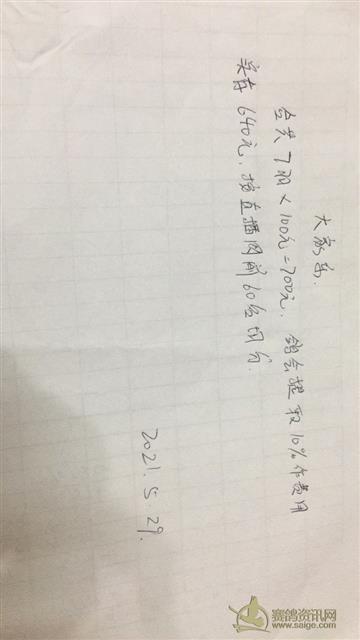 大家乐.
合共7羽×100元=700元. 鸽会提取10%作费用
实存640元. 按直播网前60名切分.
2021.5.29.
赛鸽资讯网
www.saige.com